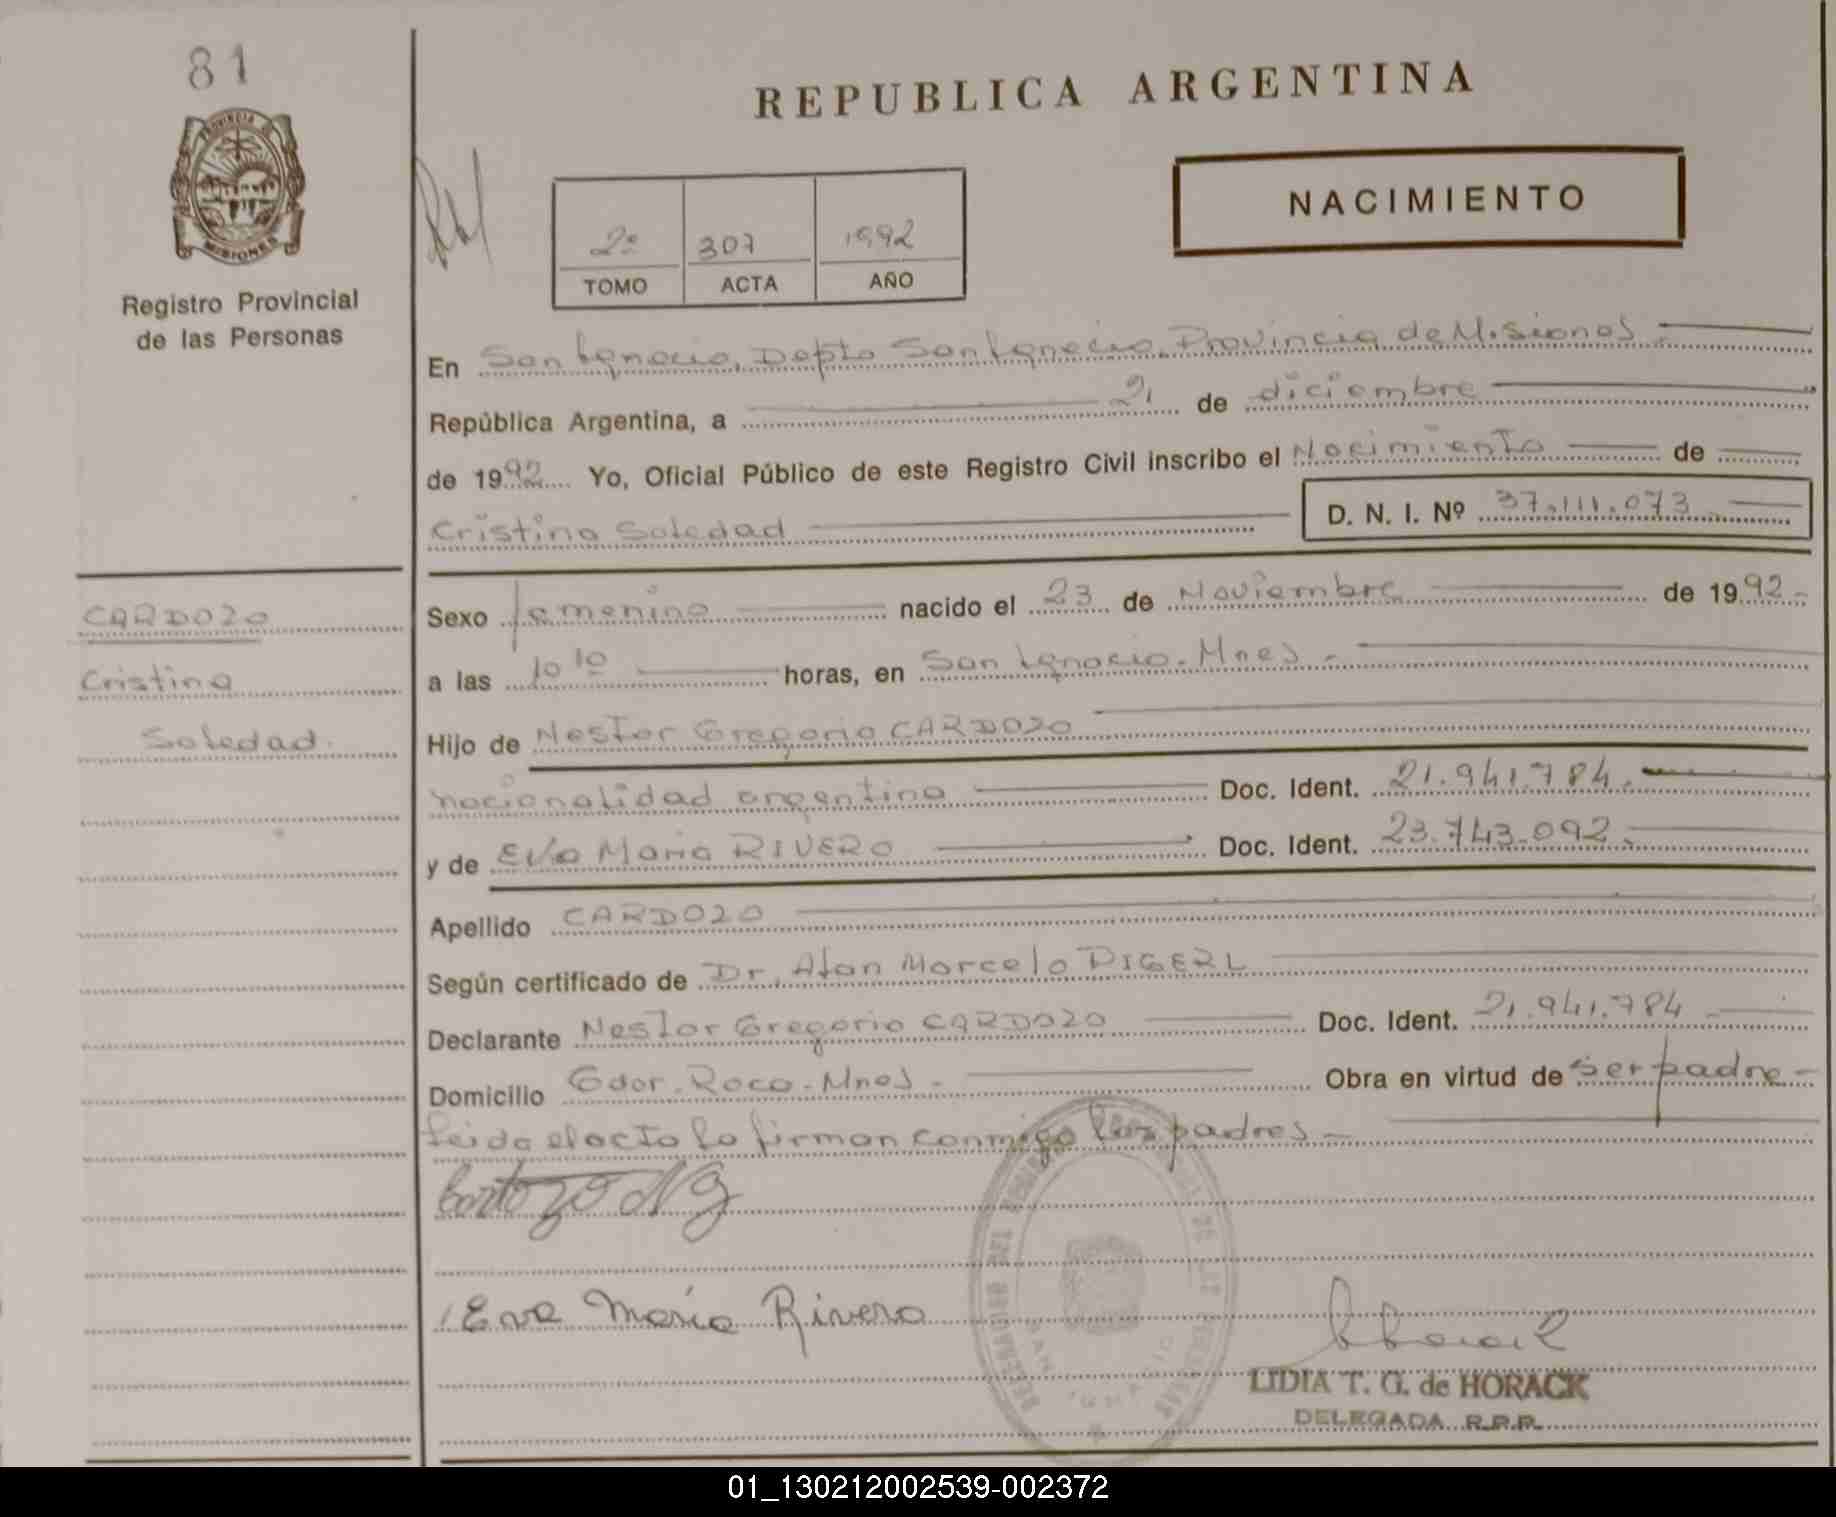 81
PROVINCIA DE
MISIONES
Registro Provincial
de las Personas
REPUBLICA ARGENTINA
NACIMIENTO
2º 307 1992
TOMO ACTA AÑO
En San Ignacio, Depto San Ignacio, Provincia de Misiones.
República Argentina, a 21 de diciembre
de 1992 Yo, Oficial Público de este Registro Civil inscribo el Nacimiento de
Cristina Soledad D. N. I. Nº 37.111.073
CARDOZO
Cristina
Soledad.
Sexo femenino nacido el 23 de Noviembre de 1992-
a las 10 10 horas, en San Ignacio-Mnes-
Hijo de Nestor Gregorio CARDOZO
nacionalidad argentina Doc. Ident. 21.941.784.
y de Eva Maria RIVERO Doc. Ident. 23.743.092.
Apellido CARDOZO
Según certificado de Dr. Alan Marcelo DIGERL
Declarante Nestor Gregorio CARDOZO Doc. Ident. 21.941.784
Domicilio Gdor. Roca-Mnes- Obra en virtud de ser padre-
leida el acta la firman conmigo los padres-
Eva María Rivero
SAN IGNACIO
LIDIA T. G. de HORACK
DELEGADA R.P.P.
01_130212002539-002372